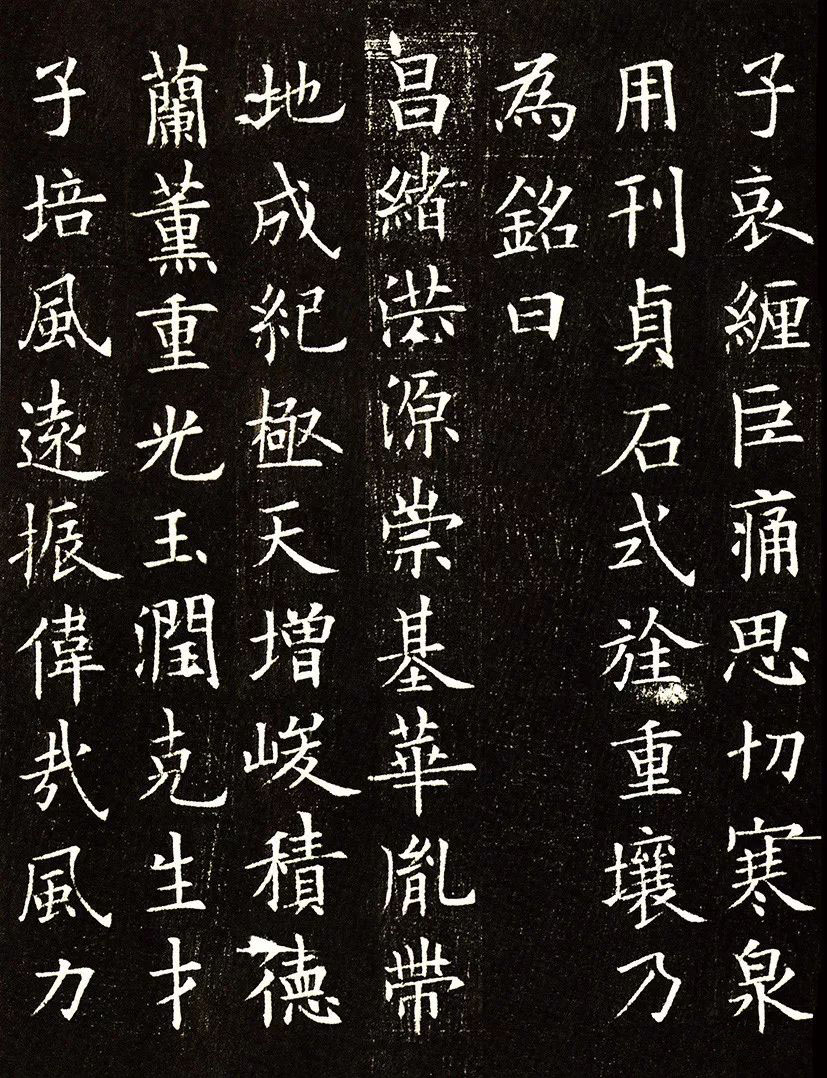 子哀纏巨痛思切寒泉
用刊貞石式旌重壤乃
為銘曰
昌緒洪源崇基華胤帶
地成紀極天增峻積德
蘭薰重光玉潤克生才
子培風遠振偉哉風力